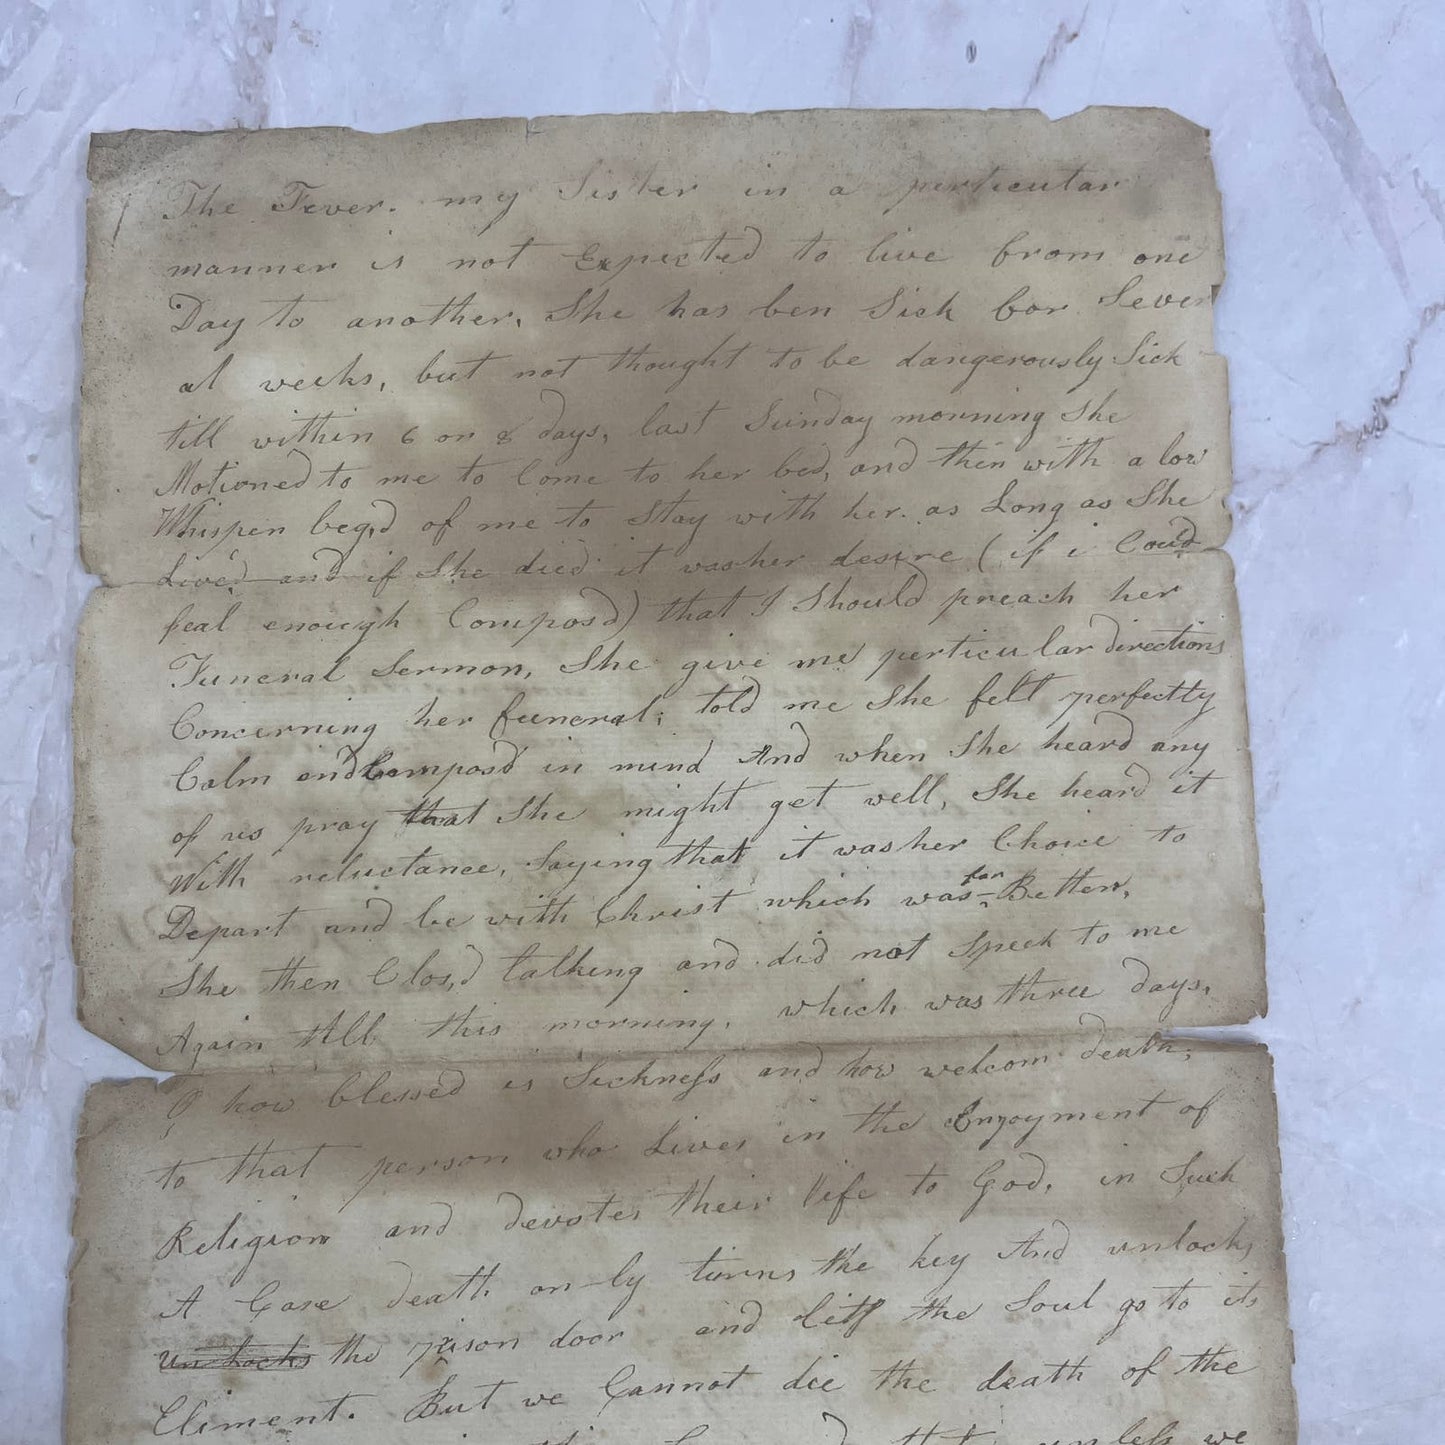 The Fever. my Sister in a perticular
manner is not Expected to live from one
Day to another, She has ben Sick for Sever
al weeks, but not thought to be dangerously Sick
till within 6 or 8 days, last Sunday morning She
Motioned to me to Come to her bed, and then with a low
Whisper beg,d of me to Stay with her. as Long as She
Live'd and if She died it was her desire (if i Cou'd
feal enough Compos'd) that I Should preach her
Funeral Sermon, She give me perticular directions
Concerning her funeral; told me She felt perfectly
Calm and Compos'd in mind And when She heard any
of us pray that She might get well, She heard it
With reluctance, Saying that it was her Choice to
Depart and be with Christ which was far Better,
She then Clos,d talking and did not Speek to me
Again till this morning, which was three days,
O how blessed is Sickness and how welcom death;
to that person who Lives in the Enjoyment of
Religion and devotes their life to God, in Such
A Case death only turns the key And unlocks
unlocks the prison door and lets the Soul go to its
Eliment. But we Cannot die the death of the
unless we